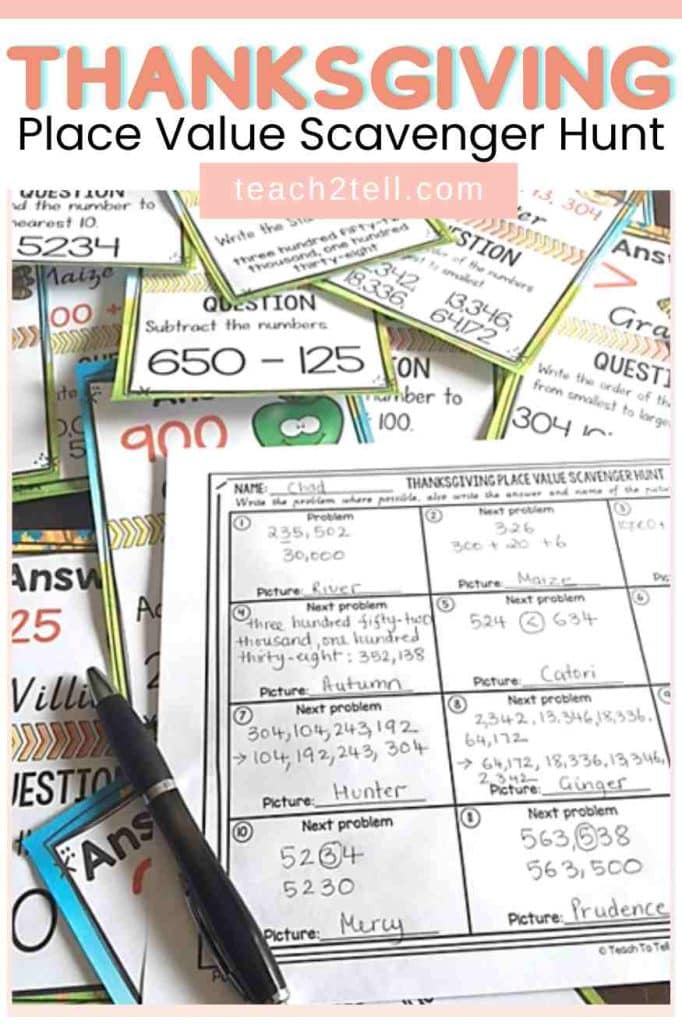 THANKSGIVING
Place Value Scavenger Hunt
teach2tell.com
QUESTION
nd the number to
nearest 10.
5234
Write the
three hundred fifty-
thousand, one hundred
thirty-eight
13, 304
STION
of the numbers
to smallest
2,342,
18,336,
13,346,
64,172
Ans
>
Gra
Maize
00 +
QUESTION
Subtract the numbers
650 - 125
ON
number to
100.
900
QUEST
Write the order of the
from smallest to large
304
Answ
25
Villi
ESTIO
Ans
0
NAME: Chad
THANKSGIVING PLACE VALUE SCAVENGER HUNT
Write the problem where possible, also write the answer and name of the
1
Problem
235,502
30,000
Picture: River
2
Next problem
326
300 + 20 + 6
Picture: Maize
3
Pic
4
Next problem
three hundred fifty-two
thousand, one hundred
thirty-eight: 352,138
Picture: Autumn
5
Next problem
524 < 634
Picture: Catori
6
7
Next problem
304, 104, 243, 192
→ 104, 192, 243, 304
Picture: Hunter
8
Next problem
2,342, 13,346, 18,336,
64,172
→ 64,172, 18,336, 13,346,
2,342
Picture: Ginger
9
10
Next problem
5234
5230
Picture: Mercy
Next problem
563,538
563,500
Picture: Prudence
© Teach To Tell